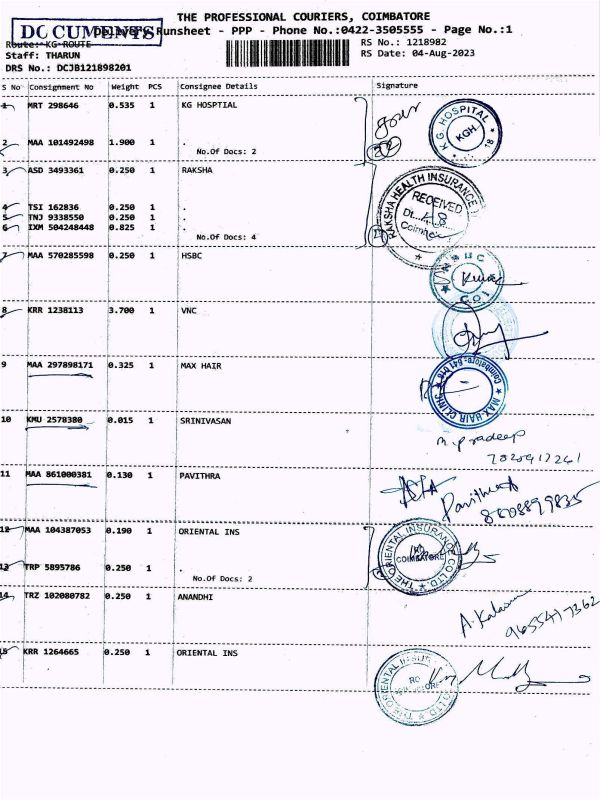 THE PROFESSIONAL COURIERS, COIMBATORE
DOCUMENTS
Runsheet - PPP - Phone No.:0422-3505555 - Page No.:1
Route: KG ROUTE
RS No.: 1218982
Staff: THARUN
RS Date: 04-Aug-2023
DRS No.: DCJB121898201
S No Consignment No Weight PCS Consignee Details Signature
1 MRT 298646 0.535 1 KG HOSPTIAL
K.G. HOSPITAL
KGH
2 MAA 101492498 1.900 1 .
No.Of Docs: 2
3 ASD 3493361 0.250 1 RAKSHA
RAKSHA HEALTH INSURANCE
RECEIVED
4 TSI 162836 0.250 1 .
5 TNJ 9338550 0.250 1 .
6 IXM 504248448 0.825 1 .
No.Of Docs: 4
7 MAA 570285598 0.250 1 HSBC
8 KRR 1238113 3.700 1 VNC
9 MAA 297898171 0.325 1 MAX HAIR
MAX-HAIR CLINIC
10 KMU 2578380 0.015 1 SRINIVASAN
m.pradeep
11 MAA 861000381 0.130 1 PAVITHRA
Pavithra
8808899835
12 MAA 104387053 0.190 1 ORIENTAL INS
THE ORIENTAL INSURANCE CO LTD.
COIMBATORE
13 TRP 5895786 0.250 1 .
No.Of Docs: 2
14 TRZ 102080782 0.250 1 ANANDHI
15 KRR 1264665 0.250 1 ORIENTAL INS